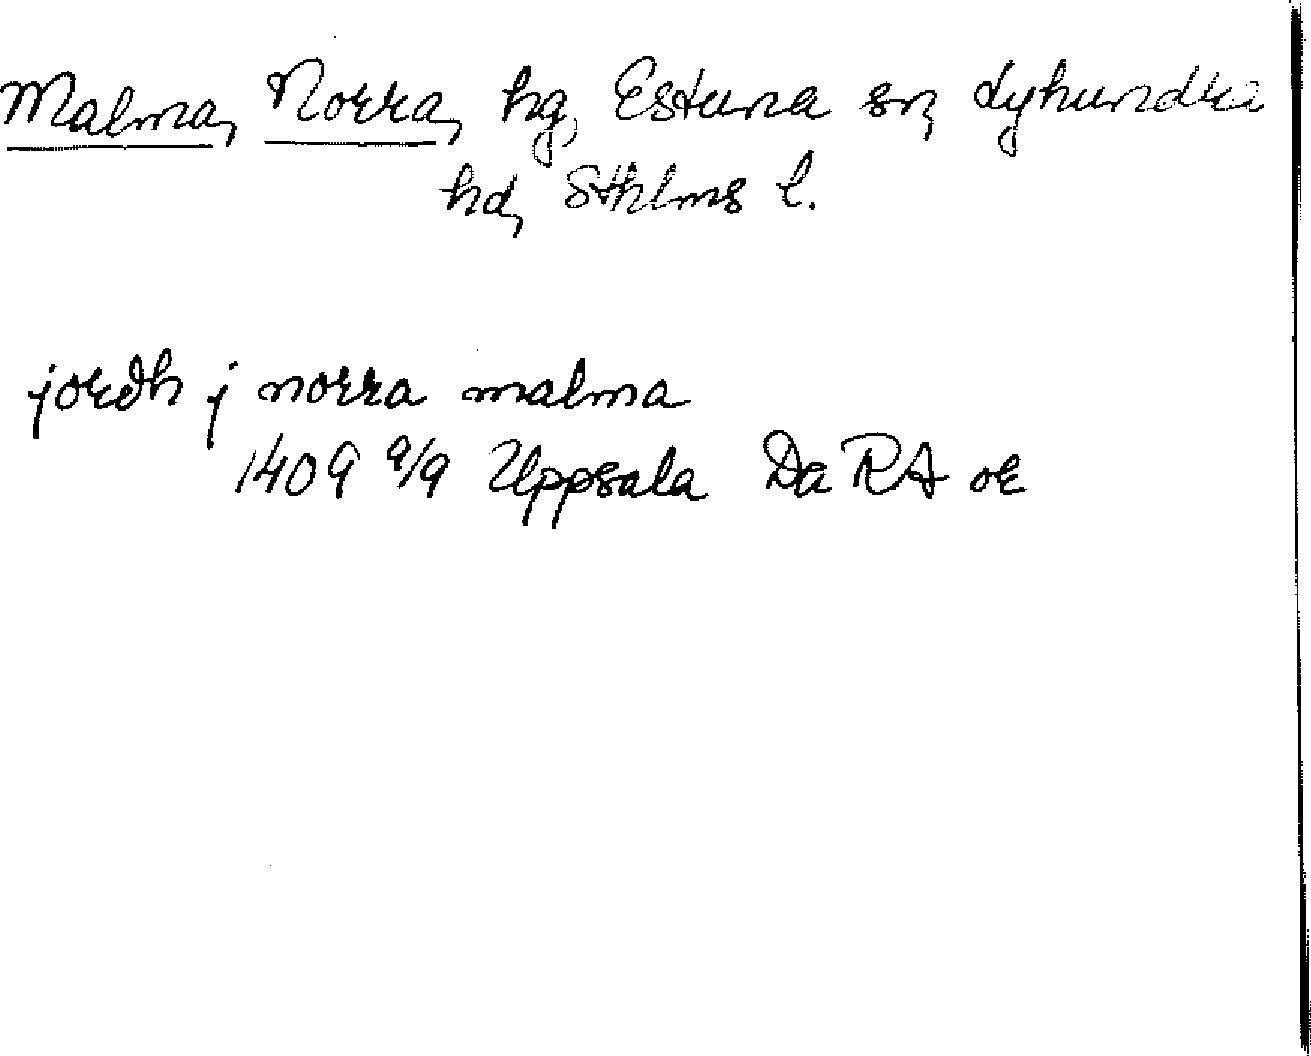 Malma, Norra, hg, Estuna sn, Lyhundra
hd, Sthlms l.
jordh j norra malma
1409 9/9 Uppsala Da RA or